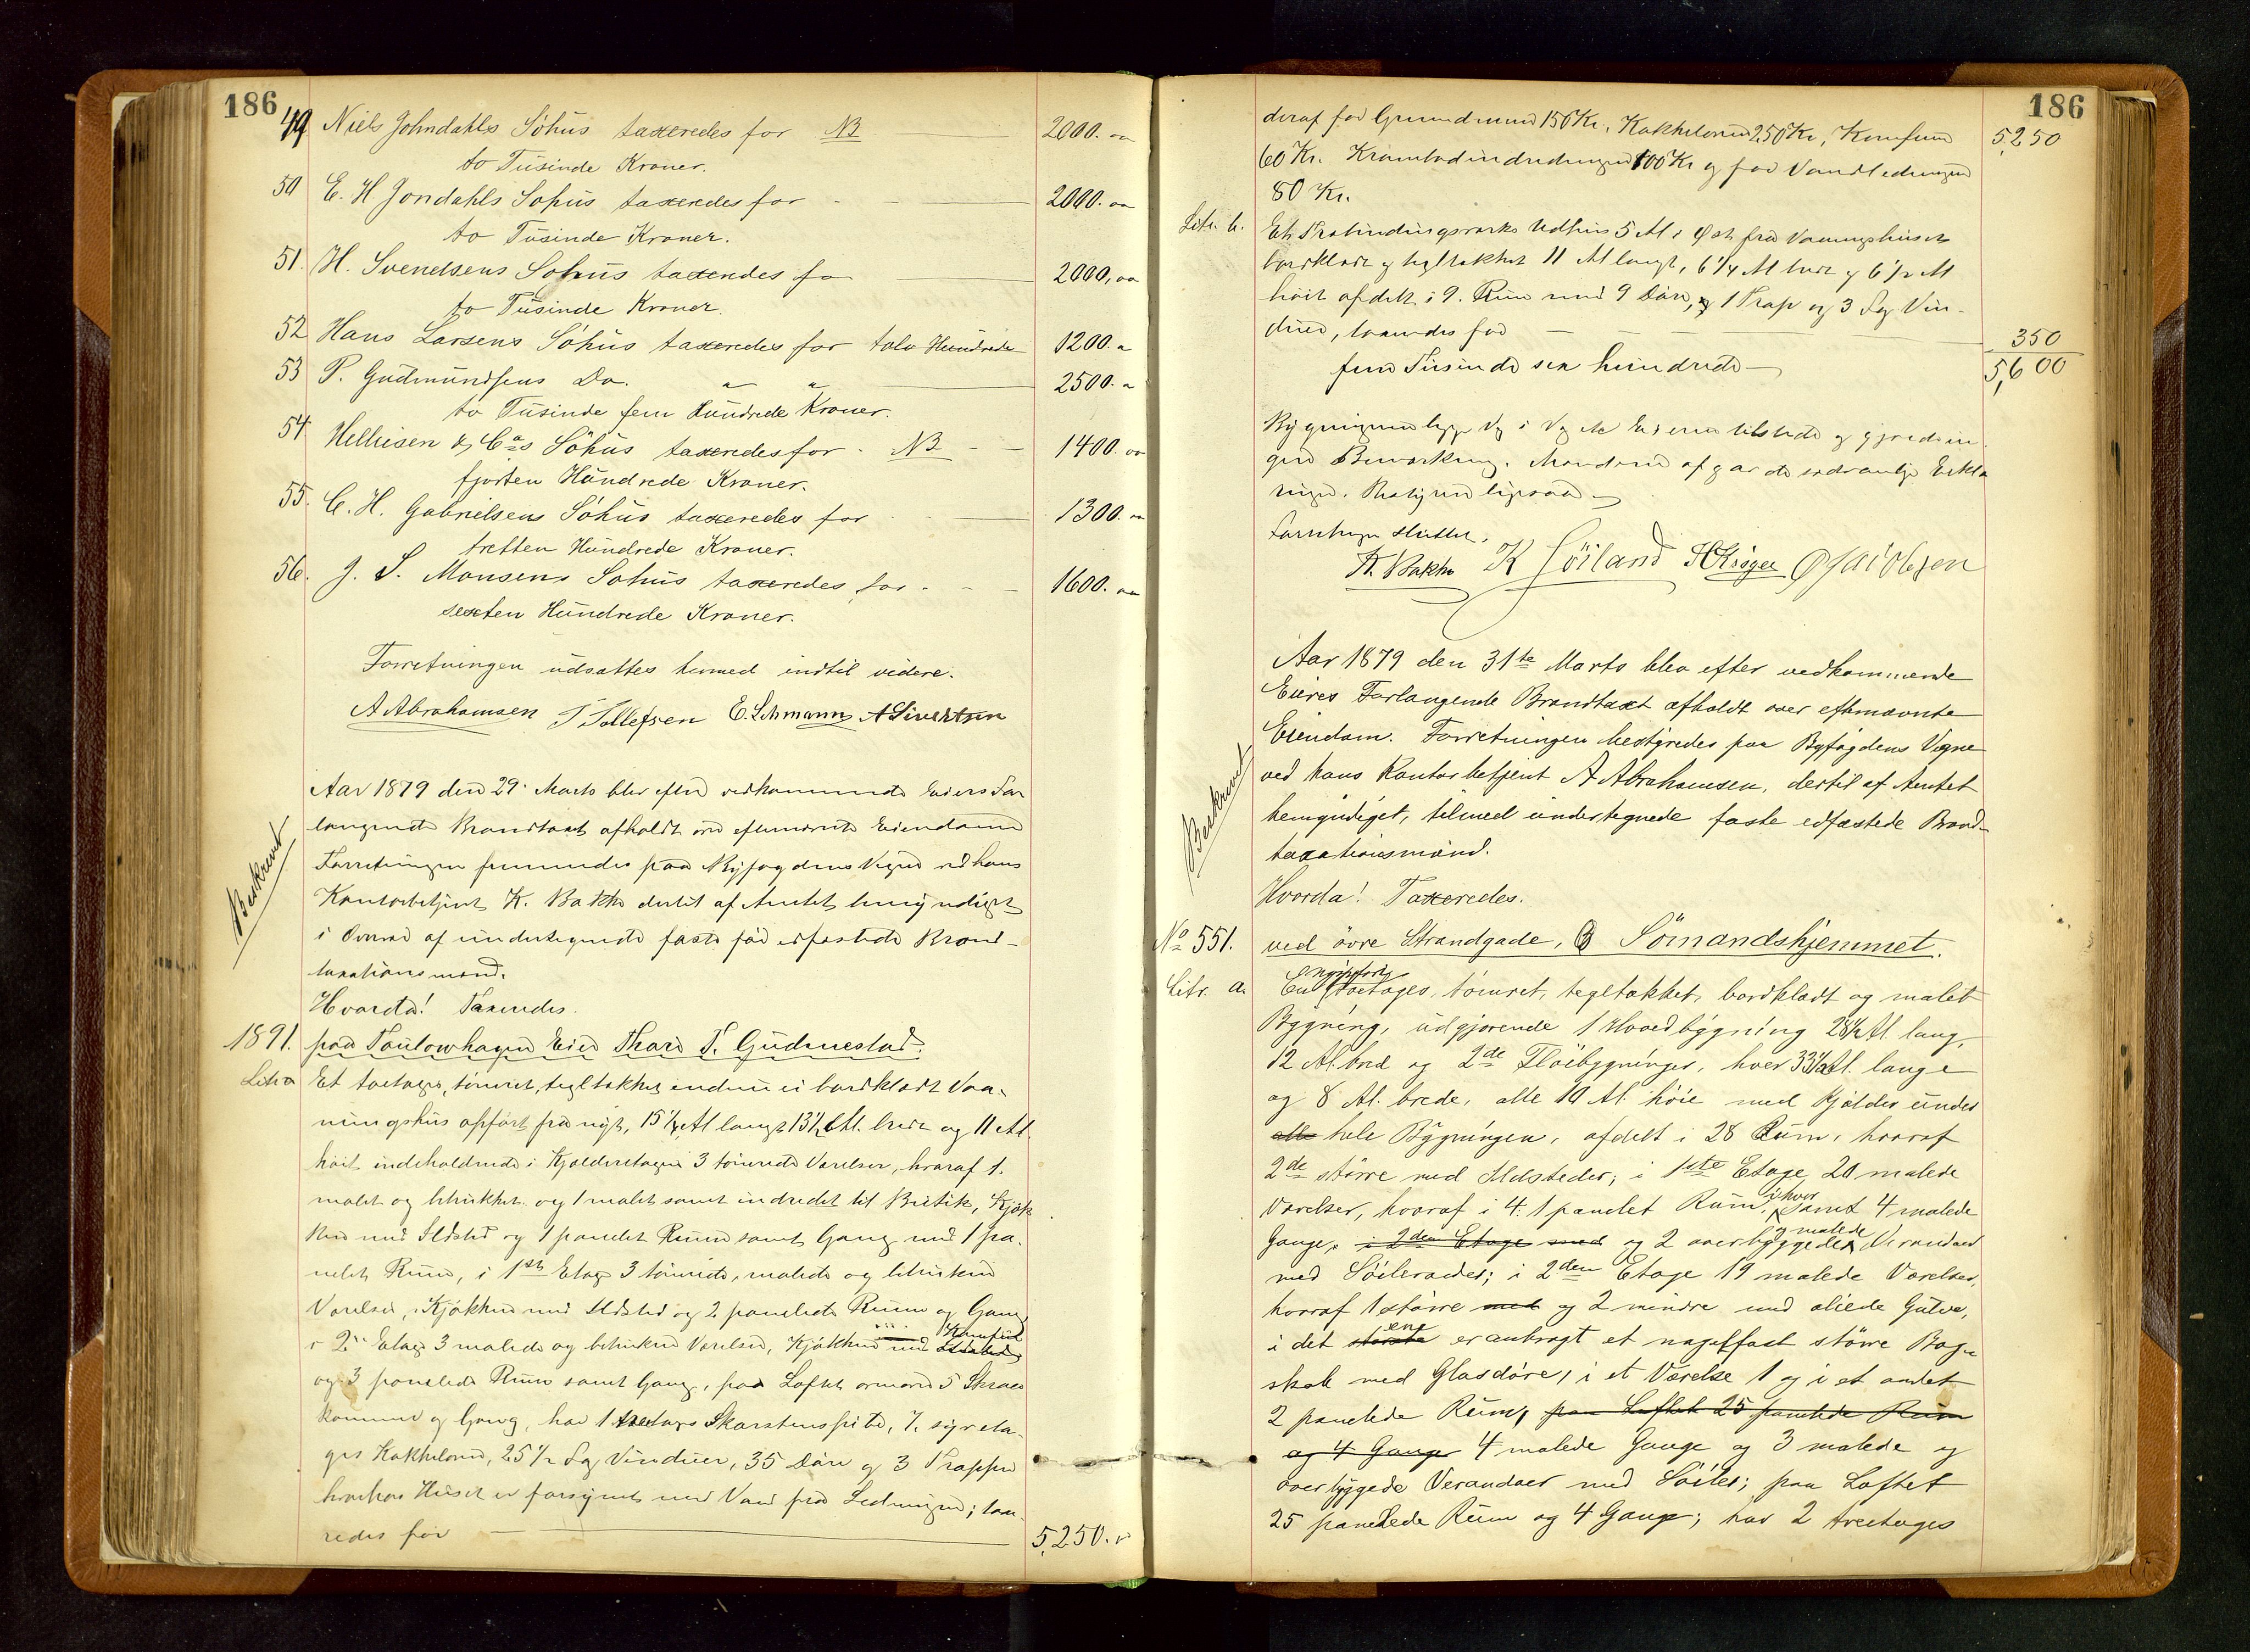 186
49 Niels Johndahls Söhus taxeredes for NB 2000. oo
to Tusinde Kroner.
50 E. H Jondahls Sohus taxeredes for 2000. oo
to Tusinde Kroner.
51. H. Svendsens Sohus taxeredes fo 2000, oo
to Tusinde Kroner.
52 Hans Larsens Söhus taxeredes for tolv Hundrede 1200. "
53 P. Gudmundsens Do. " " 2500. "
to Tusinde fem Hundrede Kroner.
54 Helliesen & Cos Söhus taxeredes for NB 1400. oo
fjorten Hundrede Kroner.
55. C. H. Gabrielsens Söhus taxeredes for 1300. oo
tretten Hundrede Kroner.
56. J. S. Monsens Sohus taxeredes for 1600. oo
sexten Hundrede Kroner.
Forretningen udsattes hermed indtil videre.
A Abrahamsen T Tollefsen E. Lehmann A Sivertsen
Beskrevet
Aar 1879 den 29. Marts blev efter vedkommende Eiers For
langende Brandtaxt afholdt over efternævnte Eiendom
Forretningen fremmedes paa Byfogdens Vegne ved hans
Kontorbetjent K. Bakke dertil af Amtet bemyndiget
i Overvær af undertegnede faste edfæstede Brand-
taxationsmænd.
Hvorda! Taxeredes.
1891. paa Toulowhagen Eier Thore T. Gudmestad.
Litr a Et toetages, tömret, tegltækket endnu ei bordklædt Vaa-
ningshus opført fra nyt, 15 1/4 Al langt 13 1/2 Al. bredt og 11 Al.
høit indeholdende i Kjelderetagen 3 tömrede Værelser, hvoraf 1.
malet og betrukket og 1 malet samt indredet til Butik, Kjøk
ken med Ildsted og 1 panelet Rum samt Gang med 1 pa-
nelet Rum, i 1ste Etage 3 tömrede, malede og betrukne
Værelser, Kjøkken med Ildsted og 2 panelede Rum og Gang
i 2den Etage 3 malede og betrukne Værelser, Kjøkken med Ildsted Komfur
og 3 panelede Rum samt Gang, paa Loftet 5 Skraa
kammer og Gang, har 1 Skorstenspibe, 7 syveta-
ges Kakkelovne, 25 1/2 Fag Vinduer, 35 Döre og 3 Trapper
hvorhos Huset er forsynet med Vand fra Ledningen; taxe-
redes for 5,250. "
186
deraf for Grundmuren 150 Kr, Kakkelovne 250 Kr, Komfuren 5,250
60 Kr. Krambodindredningen 100 Kr og for Vandledningen
80 Kr.
Litr. b. Et Udhus 5 Al i Øst fra Vaaningshuset
bordklædt og tegltækket 11 Al langt, 6 1/4 Al bredt og 6 1/2 Al
høit afdelt i 9. Rum med 9 Döre, og 1 Trap og 3 Fag Vin-
duer, taxeredes for 350
fem Tusinde sex hundrede 5,600
Bygningerne ligge Eieren tilstede og gjorde in
gen Bemærkning. Mændene afgav de sædvanlige Erklæ
ringer.
Forretningen sluttet.
K. Bakke K Söiland
Beskrevet
Aar 1879 den 31te Marts blev efter vedkommende
Eieres Forlangende Brandtaxt afholdt over efternævnte
Eiendom. Forretningen bestyredes paa Byfogdens Vegne
ved hans Kontorbetjent A Abrahamsen, dertil af Amtet
bemyndiget, tilmed undertegnede faste edfæstede Brand-
taxationsmænd.
Hvorda! Taxeredes.
No 551. ved övre Strandgade, Sömandshjemmet.
Litr. a. En nyopfört toetages, tömret, tegltækket, bordklædt og malet
Bygning, udgjørende 1 Hovedbygning 28 1/2 Al. lang,
12 Al. bred og 2de Flöibygninger, hver 33 1/2 Al. lange
og 8 Al. brede, alle 10 Al. höie med Kjælder under
alle hele Bygningen, afdelt i 28 Rum, hvoraf
2de större med Ildsteder; i 1ste Etage 20 malede
Værelser, hvoraf i 4. 1 panelet Rum, i hver samt 4 malede
Gange, i 2den Etage med og 2 overbyggede og malede Verandaer
med Söilerader; i 2den Etage 19 malede Værelser,
hvoraf 1 större med og 2 mindre med oliede Gulve,
i det störste ene er anbragt et nagelfast större Bog-
skab med Glasdöre, i et Værelse 1 og i et andet
2 panelede Rum, paa Loftet 25 panelede Rum
og 4 Gange 4 malede Gange og 3 malede og
overbyggede Verandaer med Söiler; paa Loftet
25 panelede Rum og 4 Gange; har 2 treetages